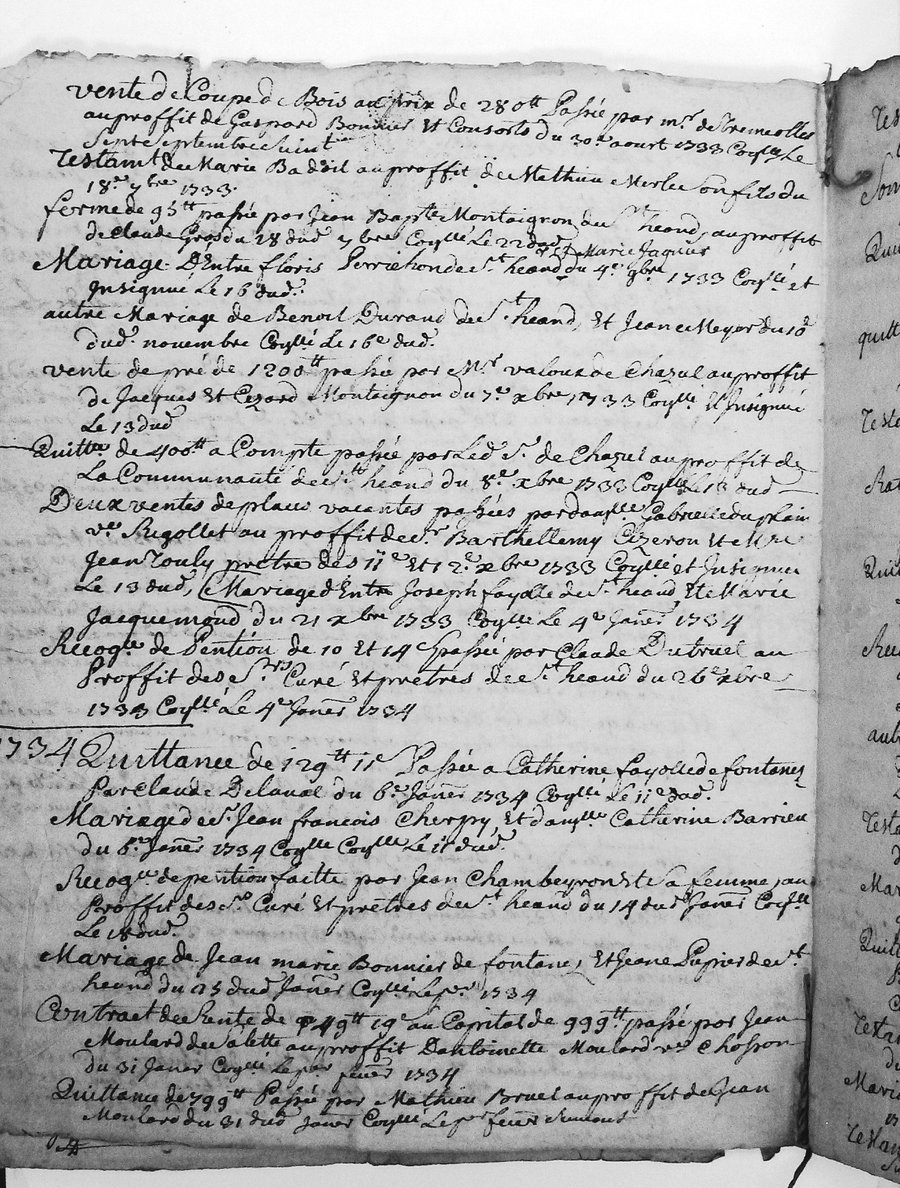 vente de Coupe de Bois au prix de 280tt Passée par mr. de Tremeolles
au proffit de Gaspard Bonnier Et Consorts du 30e aoust 1733 Coyllé Le
Sept Septembre Suivt
Testamt de Marie Badoil au proffit de Mathieu Merle Son fils du
18e 7bre 1733.
ferme de 95tt passée par Jean Bapte Montaignon de St heand, au proffit
de Claude Gros du 18 dud. 7bre Coyllé Le 22 dud.
Mariage D'Entre floris Perrichon de St. heand Et Marie Jaquier du 4e 9bre 1733 Coyllé et
Insignué Le 16 dud.
autre Mariage de Benoit Durand de St heand, Et Jeane Meyer du 10e
dud. novembre Coyllé Le 16e dud.
vente de pré de 1200tt passée par Mr valoux de Chazul au proffit
de Jacques Et Cezard Montaignon du 7e xbre 1733 Coyllé, Et Insignué
Le 13 dud
Quittce de 400tt a Compte passée par Led. Sr. de Chazul au proffit de
La Communauté de St heand du 8e xbre 1733 Coyllé Le 13 dud
Deux ventes de places vacantes passées par damlle Gabrielle duplain
ve Rigollet au proffit de Sr Barthellemy Cizeron Et Mre
Jean Jouly prêtre des 11e Et 12e xbre 1733 Coyllé et Insignué
Le 13 dud, Mariage d'Entre Joseph fayolle de St heand, Et Marie
Jacquemond du 21 xbre 1733 Coyllé Le 4e Janer 1734
Recogce de Pention de 10 Et 14 Passée par Claude Dutruel au
Proffit des Srs Curé Et prêtres de St heand du 26e xbre
1733 Coyllé Le 4e Janer 1734
1734 Quittance de 129tt 11s Passée a Catherine fayolle de fontanez
Par Claude Delaval du 6e Janer 1734 Coyllé Le 11e dud.
Mariage de Sr. Jean francois Cherpy Et damlle Catherine Barrieu
du 6e Janer 1734 Coyllé Coyllé Le 11 dud.
Recogce de pention faitte par Jean Chambeyron Et Sa femme, au
Proffit des Srs Curé Et prêtres de St heand du 14 dud Janer Coyllé
Le 18 dud.
Mariage de Jean marie Bonnier de fontanes, Et Jeane Papier de St
heand du 25 dud Janer Coyllé Le per 1734
Contract de Rente de 49tt 19s au Capital de 999tt passé par Jean
Moulard de Valette au proffit D'antoinette Moulard ve Chosson
du 31 Janer Coyllé Le per feuer 1734
Quittance de 799tt Passée par Mathieu Bruel au proffit de Jean
Moulard du 31 dud Janer Coyllé Le per feuer Suivant